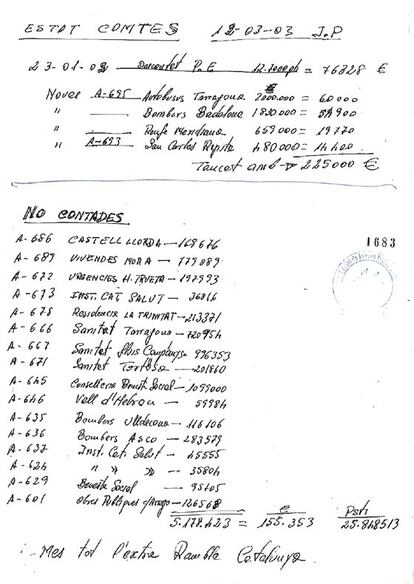 ESTAT COMTES 12-03-03 J.P
23-01-03 P.E 12.700 = 76328 €
Noves A-695 Autobusos Tarragona 2000.000 = 60000
" Bombers Badalona 1830000 =
" 659000 = 19770
" A-693 San Carlos Rapita 480000 = 14400
Tancat amb 225000 €
NO CONTADES
A-686 CASTELL LLORDA — 168676
1683
A-689 VIVENDES MORA — 779089
A-672 URGENCIES H. TRUETA — 197993
A-673 INST. CAT SALUT — 36816
A-678 Residencia LA TRINITAT — 213371
A-666 Sanitat Tarragona — 720954
A-667 Sanitat Lluis Companys 996353
A-671 Sanitat Tortosa — 201860
A-645 Conselleria Benestar Social — 1099000
A-646 Vall d'Hebron — 59984
A-635 Bombers Ulldecona — 116106
A-636 Bombers Asco — 283579
A-637 Inst. Cat. Salut — 45555
A-624 " " " — 35804
A-629 Social — 95105
A-601 Obres Publiques 126568
€ Pts
5.178.423 = 155.353 25.848513
Mes tot l'extra Rambla Catalunya.